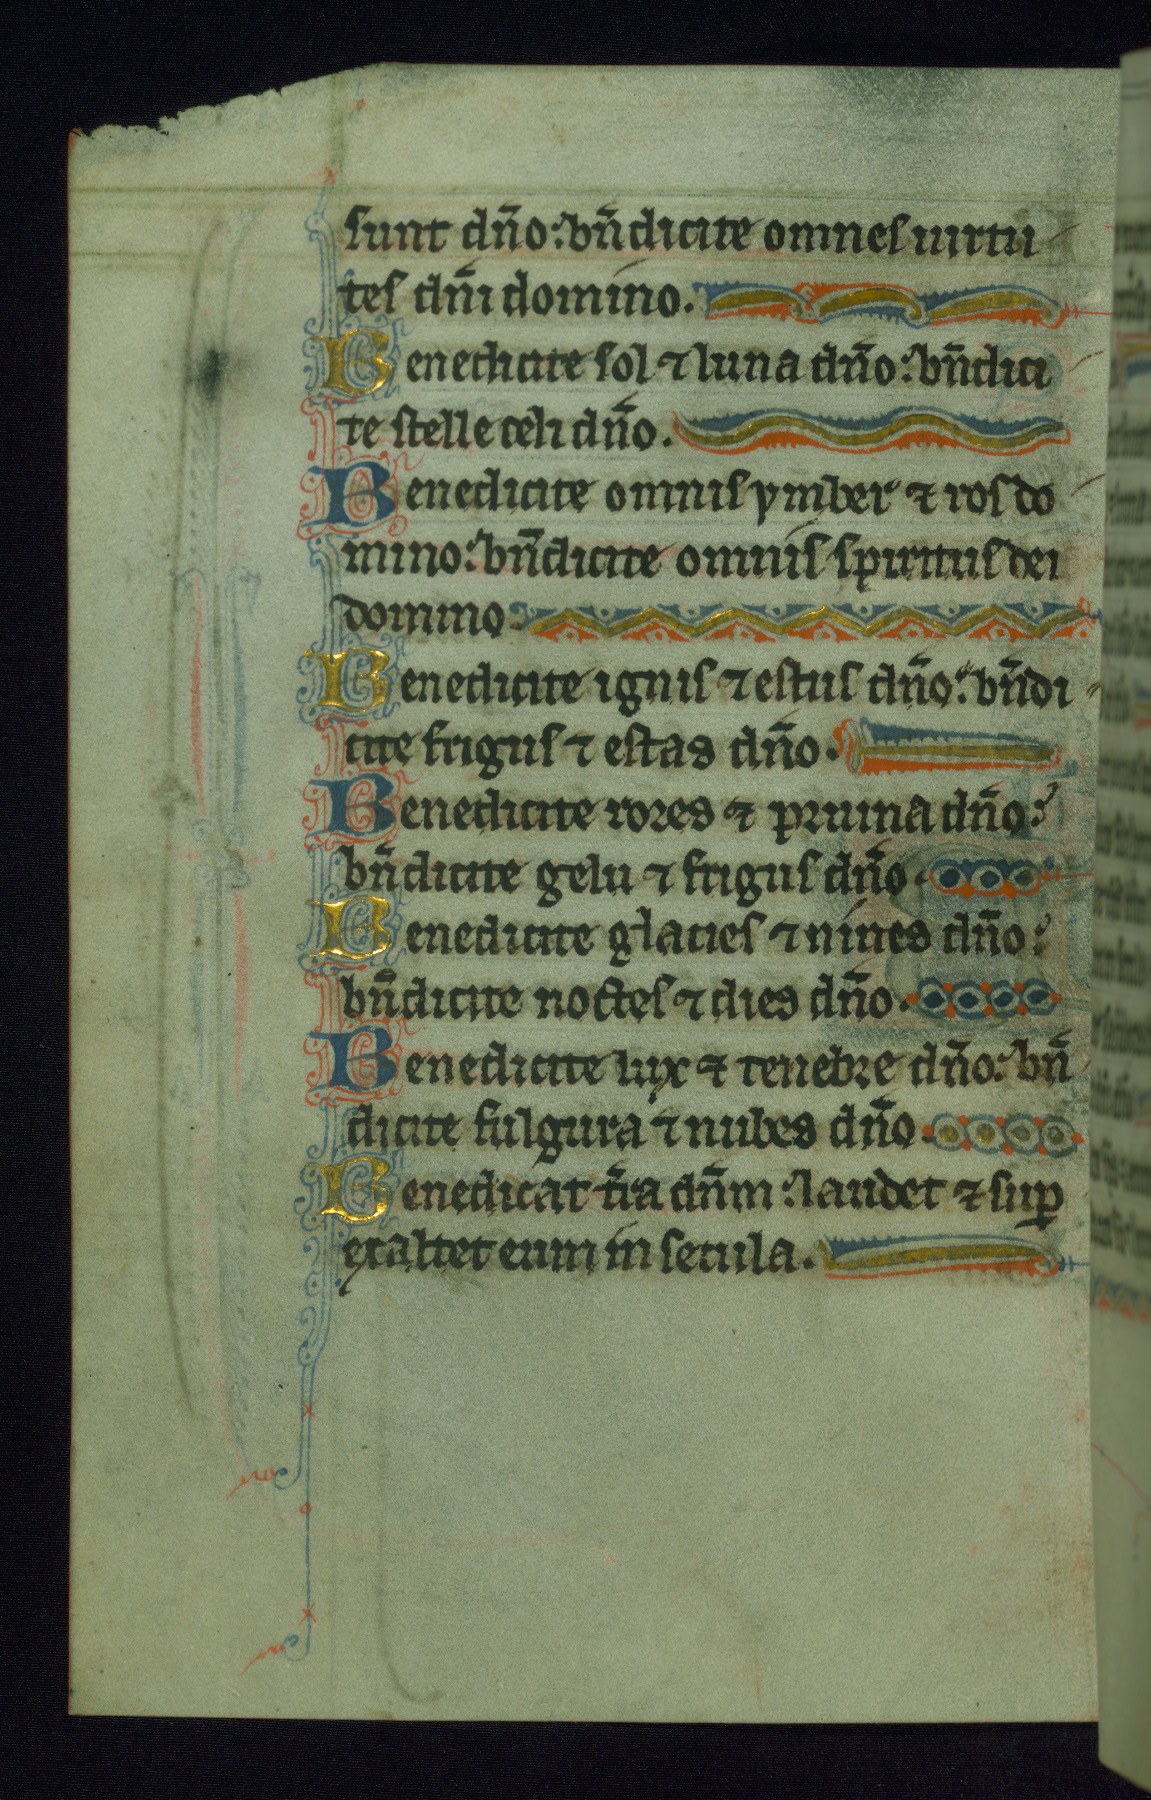 sunt dn̄o: bn̄dicite omnes uirtu
tes dn̄i domino.
Benedicite sol ⁊ luna dn̄o: bn̄dici
te stelle celi dn̄o.
Benedicite omnis ymber ⁊ ros do
mino: bn̄dicite omnis spiritus dei
domino.
Benedicite ignis ⁊ estus dn̄o: bn̄di
cite frigus ⁊ estas dn̄o.
Benedicite rores ⁊ pruina dn̄o:
bn̄dicite gelu ⁊ frigus dn̄o.
Benedicite glacies ⁊ niues dn̄o:
bn̄dicite noctes ⁊ dies dn̄o.
Benedicite lux ⁊ tenebre dn̄o: bn̄
dicite fulgura ⁊ nubes dn̄o.
Benedicat t̄ra dn̄m: laudet ⁊ suꝑ
exaltet eum in secula.